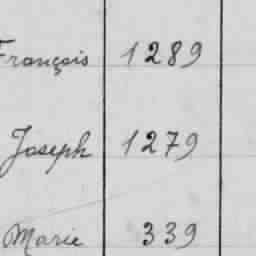 François 1289
Joseph 1279
Marie 339